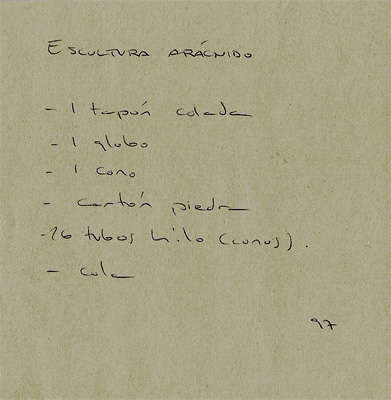 ESCULTURA ARÁCNIDO
- 1 tapón colada
- 1 globo
- 1 cono
- cartón piedra
- 16 tubos hilo (conos).
- cola
97